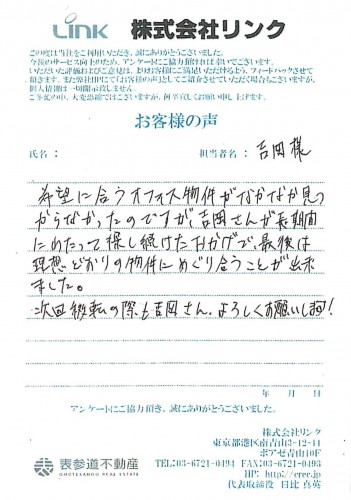 LINK 株式会社リンク
この度は当社をご利用いただき、誠にありがとうございました。
今後のサービス向上のため、アンケートにご協力頂ければ幸いでございます。
いただいた評価およびご意見は、よりお客様にご満足いただけるよう、フィードバックさせて
頂きます。また弊社HPにて「お客様の声」としてご紹介させていただく場合もございますが、
個人情報は一切開示致しません。
ご多忙の中、大変恐縮ではございますが、何卒宜しくお願い申し上げます。
お客様の声
氏名： 担当者名：吉岡様
希望に合うオフィス物件がなかなか見つ
からなかったのですが、吉岡さんが長期間
にわたって探し続けたおかげで、最後は
理想どおりの物件にめぐり合うことが出来
ました。
次回移転の際も吉岡さん、よろしくお願いします!
年 月 日
アンケートにご協力頂き、誠にありがとうございました。
株式会社リンク
東京都港区南青山3-12-11
ボアゼ青山10F
TEL:03-6721-0494 FAX:03-6721-0493
HP: http://crec.jp
代表取締役 日比 真英
表参道不動産
OMOTESANDO REAL ESTATE